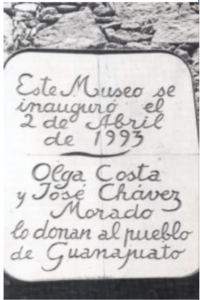 Este Museo se
inauguró el
2 de Abril
de 1993
Olga Costa
y José Chávez
Morado
lo donan al pueblo
de Guanajuato